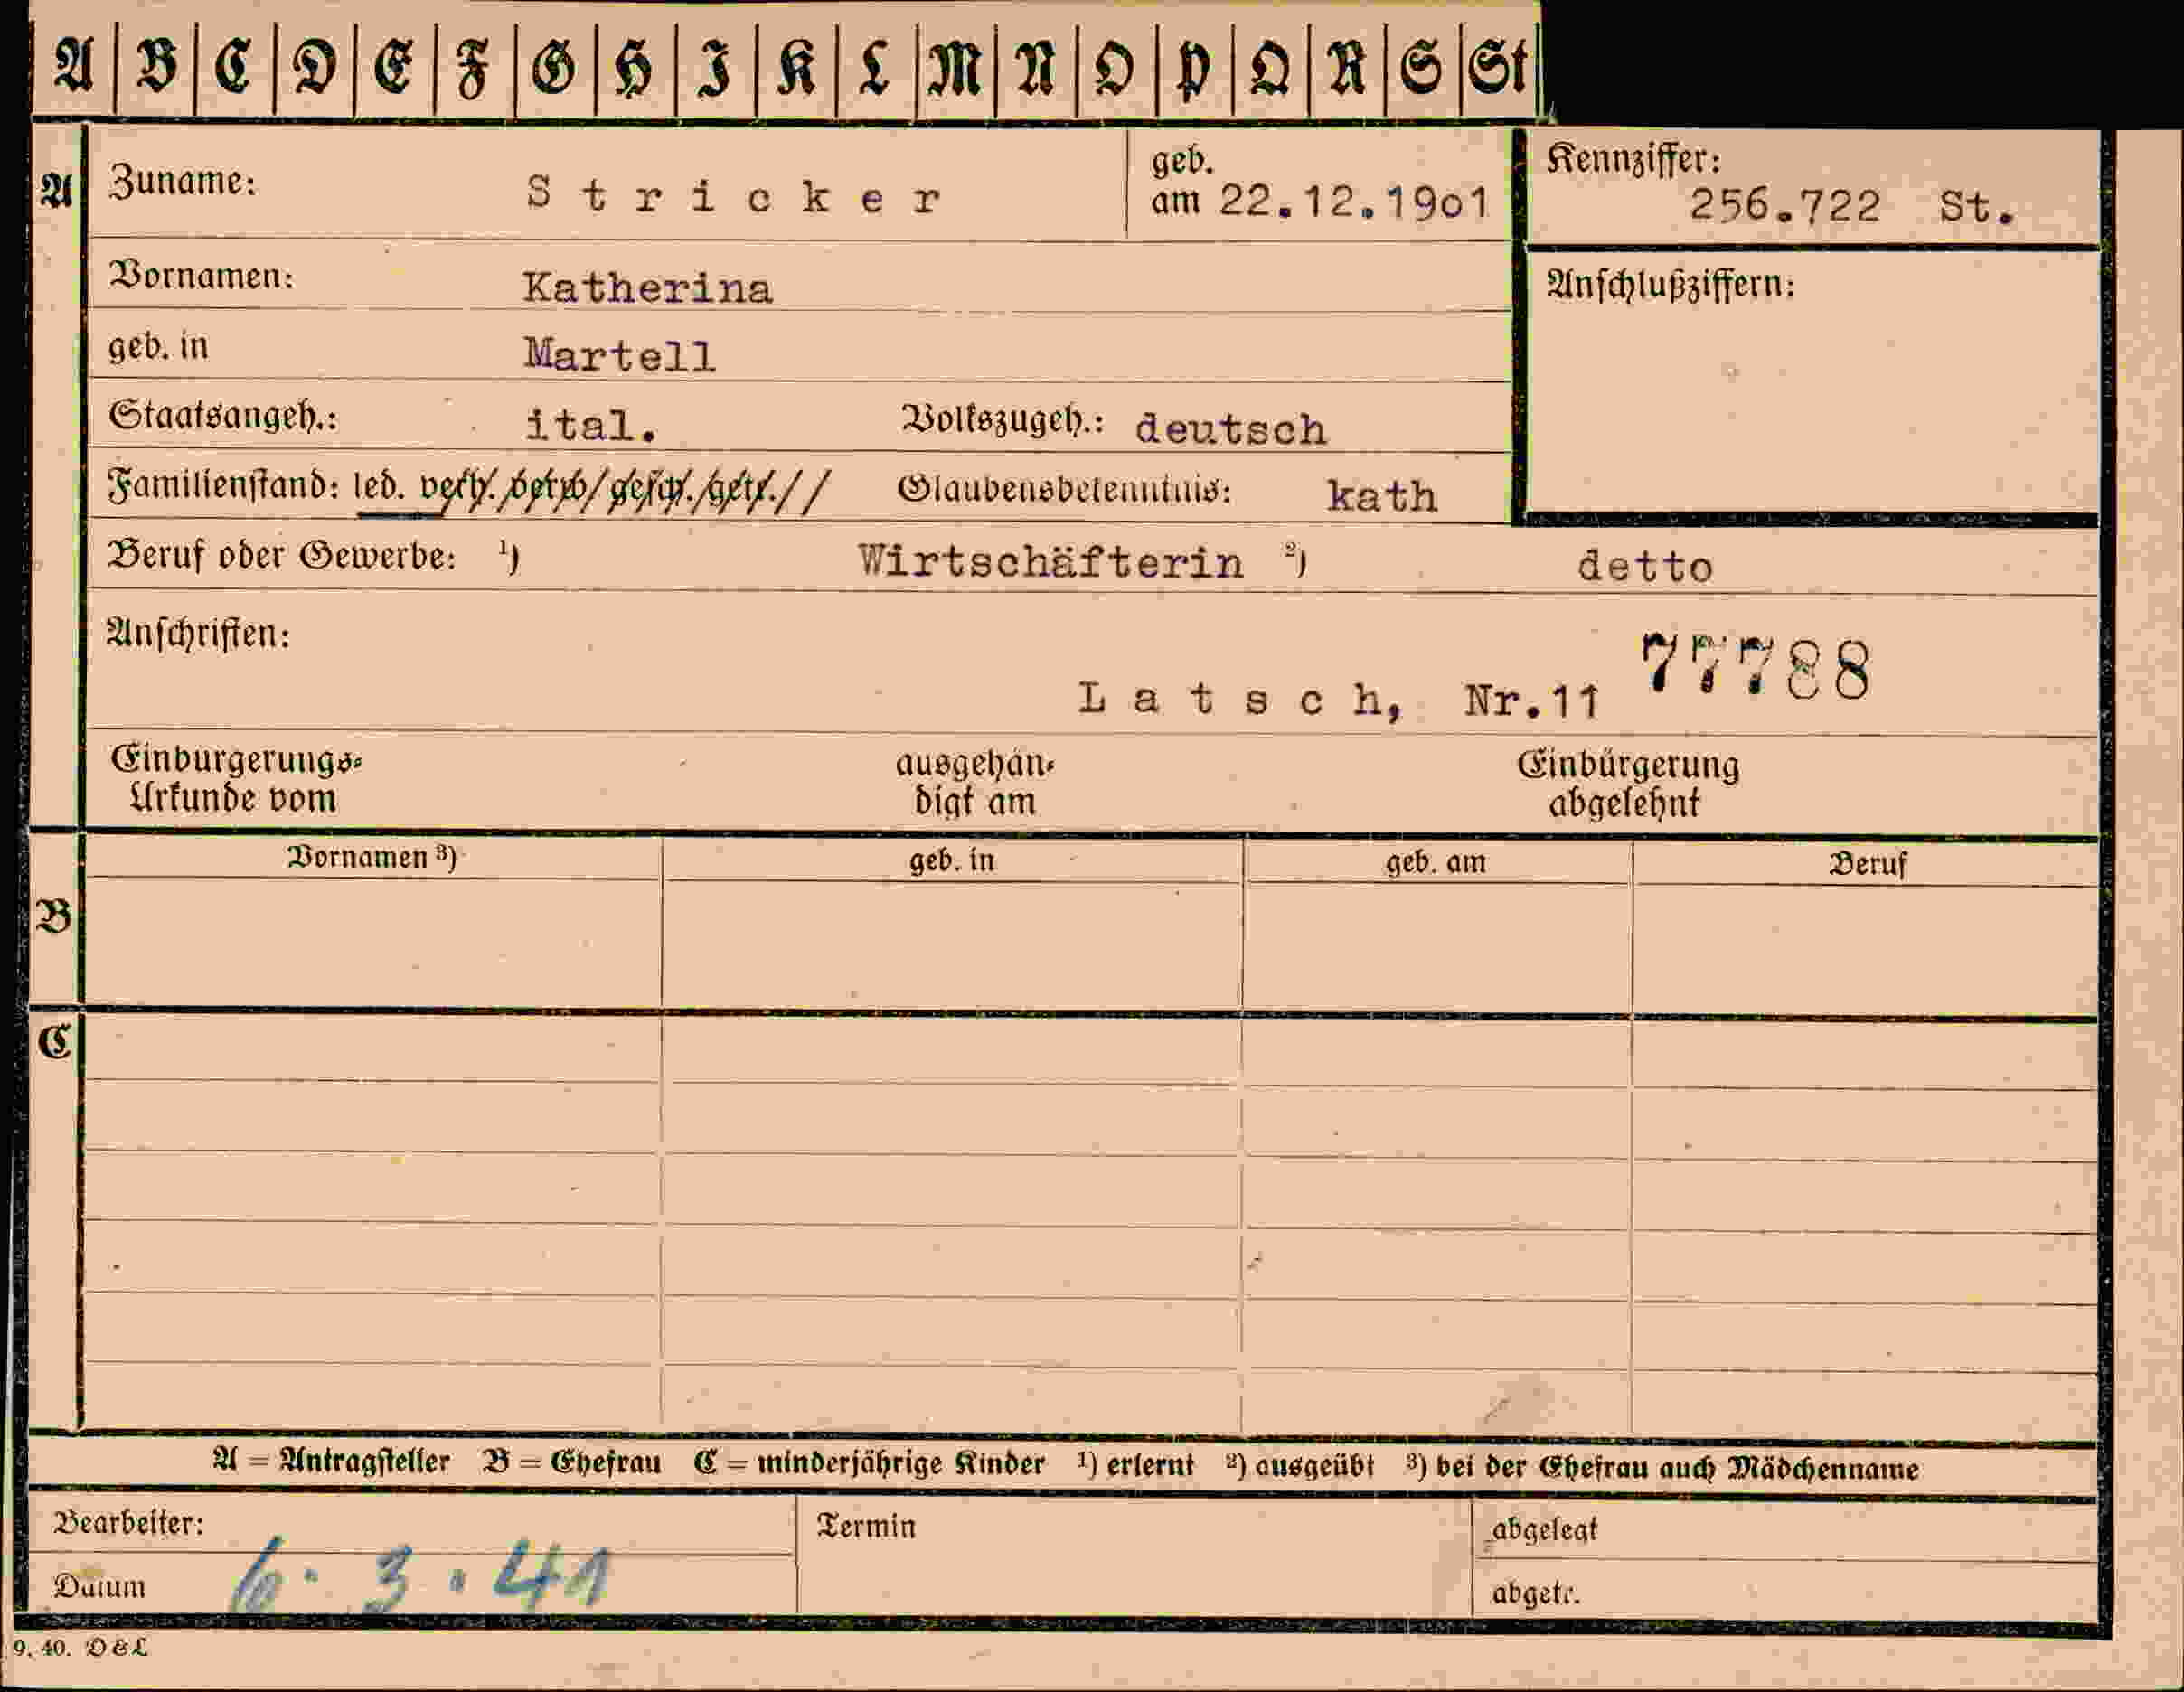 A B C D E F G H I K L M N O P Q R S St
A Zuname: Stricker geb. am 22.12.19o1 Kennziffer: 256.722 St.
Vornamen: Katherina Anschlußziffern:
geb. in Martell
Staatsangeh.: ital. Volkszugeh.: deutsch
Familienstand: led. verh. verw. gesch. getr. Glaubensbekenntnis: kath
Beruf oder Gewerbe: ¹) Wirtschäfterin ²) detto
Anschriften: 77788
Latsch, Nr.11
Einbürgerungs- ausgehän- Einbürgerung
Urkunde vom digt am abgelehnt
Vornamen ³) geb. in geb. am Beruf
B
C
A = Antragsteller B = Ehefrau C = minderjährige Kinder ¹) erlernt ²) ausgeübt ³) bei der Ehefrau auch Mädchenname
Bearbeiter: Termin abgelegt
Datum 6. 3. 41 abgetr.
9. 40. D & L